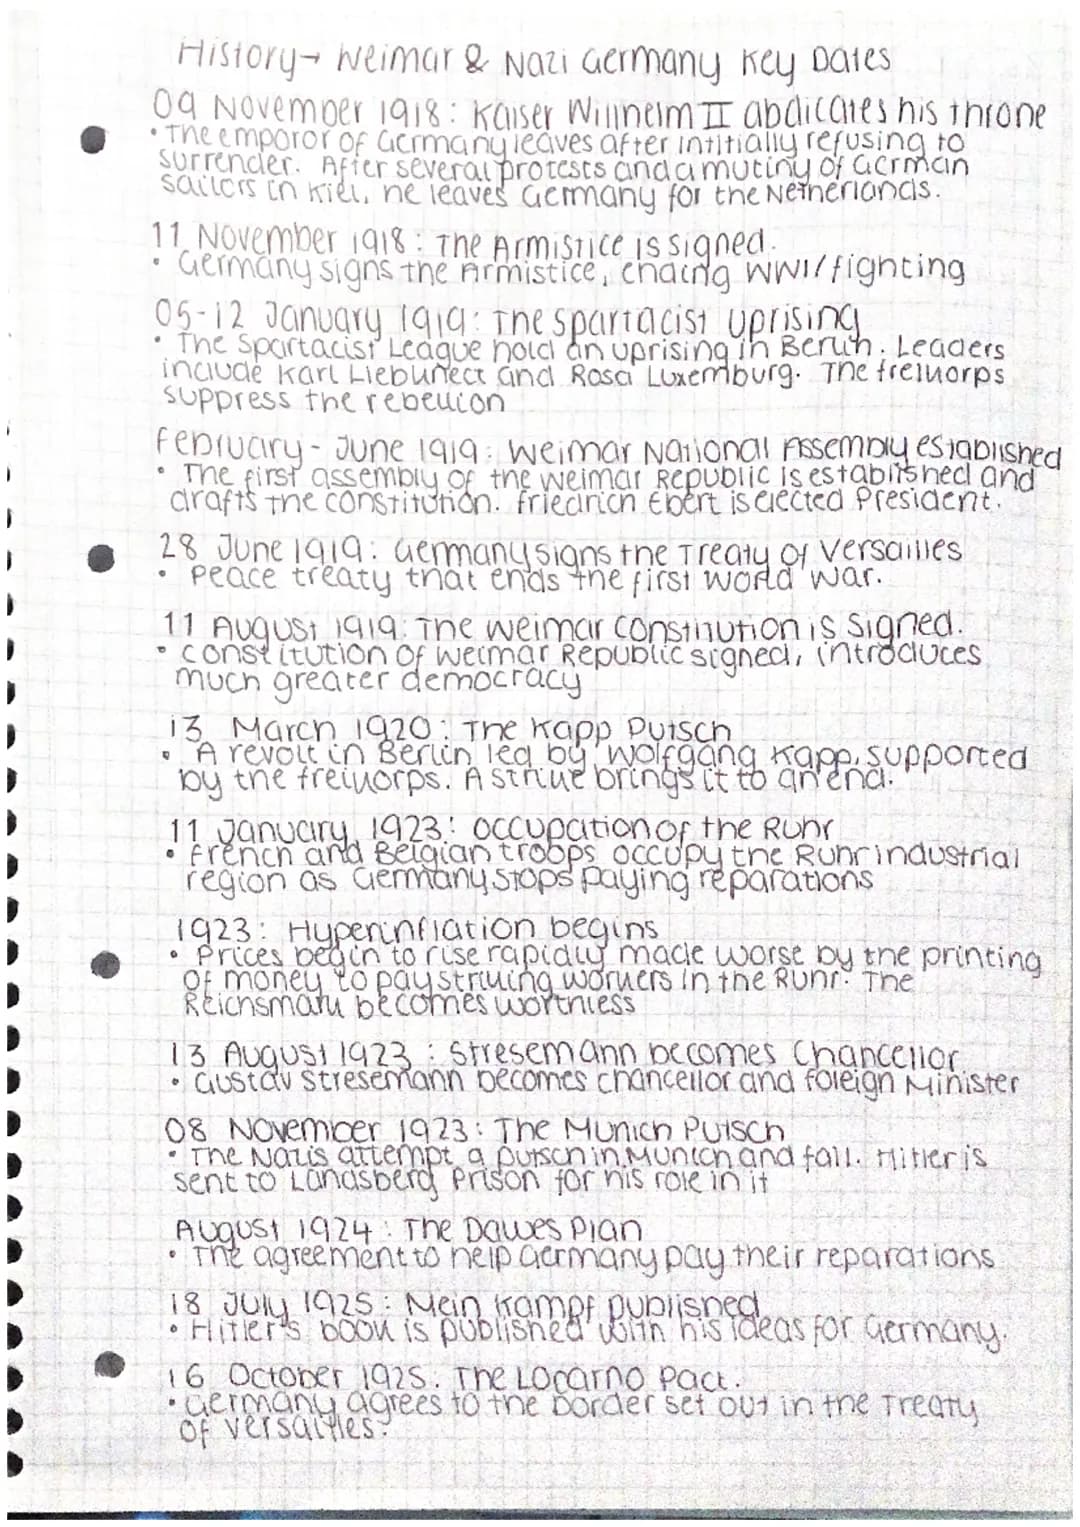 History → Weimar & Nazi Germany Key Dates
09 November 1918: Kaiser Willhelm II abdicates his throne
• The emporor of Germany leaves after intitially refusing to
surrender. After several protests and a mutiny of German
sailors in Kiel, he leaves Germany for the Netherlands.
11 November 1918: The Armistice is signed.
• Germany signs the Armistice, ending WW1/fighting
05-12 January 1919: The Spartacist Uprising
• The Spartacist League hold an uprising in Berlin. Leaders
include Karl Liebknect and Rosa Luxemburg. The freikorps
suppress the rebellion
February - June 1919: Weimar National Assembly established
• The first assembly of the Weimar Republic is established and
drafts the constitution. Friedrich Ebert is elected President.
28 June 1919: Germany signs the Treaty of Versailles
• Peace treaty that ends the first world war.
11 August 1919: The Weimar Constitution is signed.
• constitution of Weimar Republic signed, introduces
much greater democracy
13 March 1920: The Kapp Putsch
• A revolt in Berlin led by Wolfgang Kapp, supported
by the freikorps. A strike brings it to an end.
11 January 1923: Occupation of the Ruhr
• French and Belgian troops occupy the Ruhr industrial
region as Germany stops paying reparations
1923: Hyperinflation begins
• Prices begin to rise rapidly made worse by the printing
of money to pay striking workers in the Ruhr. The
Reichsmark becomes worthless
13 August 1923: Stresemann becomes Chancellor
• Gustav Stresemann becomes chancellor and foreign Minister
08 November 1923: The Munich Putsch
• The Nazis attempt a putsch in Munich and fail. Hitler is
sent to Landsberg Prison for his role in it
August 1924: The Dawes Plan
• The agreement to help Germany pay their reparations
18 July 1925: Mein Kampf published
• Hitler's book is published with his ideas for Germany.
16 October 1925. The Locarno Pact.
• Germany agrees to the border set out in the Treaty
of Versailles.